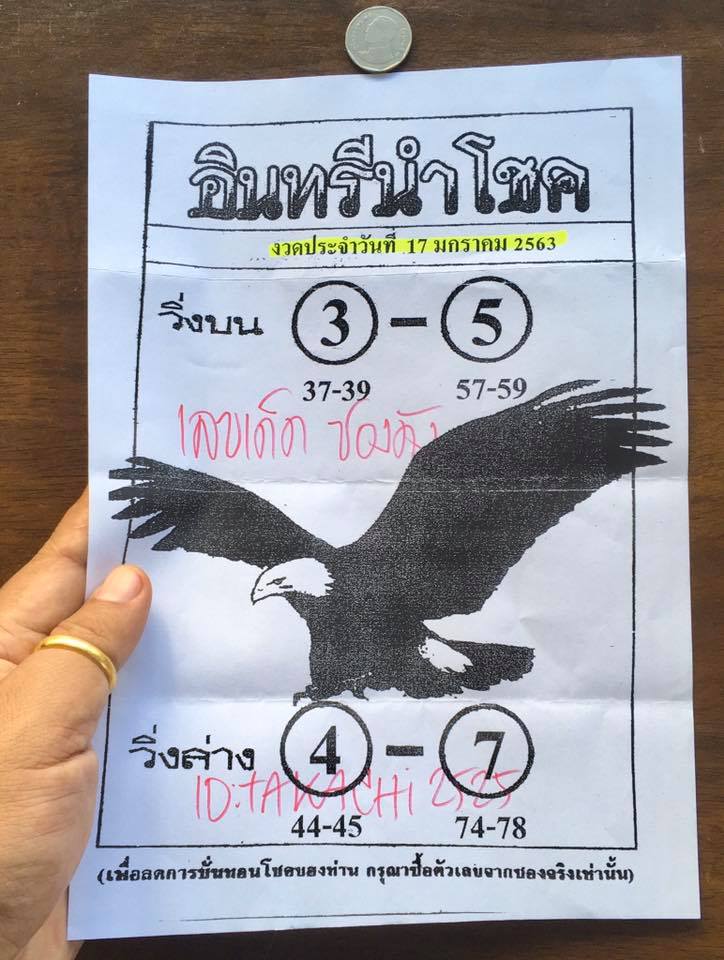 อินทรีนำโชค
งวดประจำวันที่ 17 มกราคม 2563
วิ่งบน 3 - 5
37-39 57-59
เลขเด็ด ซองดัง
วิ่งล่าง 4 - 7
ID:TAKACHi 2525
44-45 74-78
(เพื่อลดการบั่นทอนโชคของท่าน กรุณาซื้อตัวเลขจากซองจริงเท่านั้น)